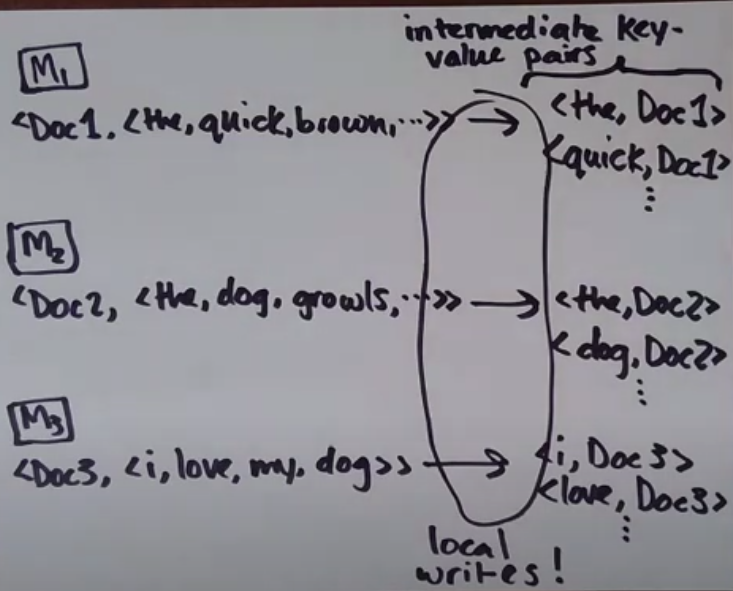 intermediate key-
value pairs
M1
<Doc1, <the, quick, brown, ...>> → <the, Doc1>
<quick, Doc1>
⋮
M2
<Doc2, <the, dog, growls, ...>> → <the, Doc2>
<dog, Doc2>
⋮
M3
<Doc3, <i, love, my, dog>> → <i, Doc3>
<love, Doc3>
⋮
local
writes!